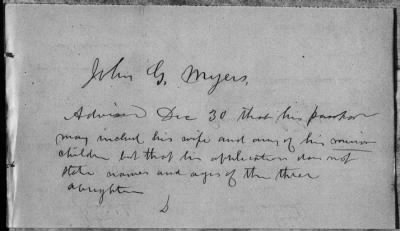 John G. Myers,
Advised Dec 30 that his passport
may include his wife and any of his minor
children but that his application does not
state names and ages of the three
D